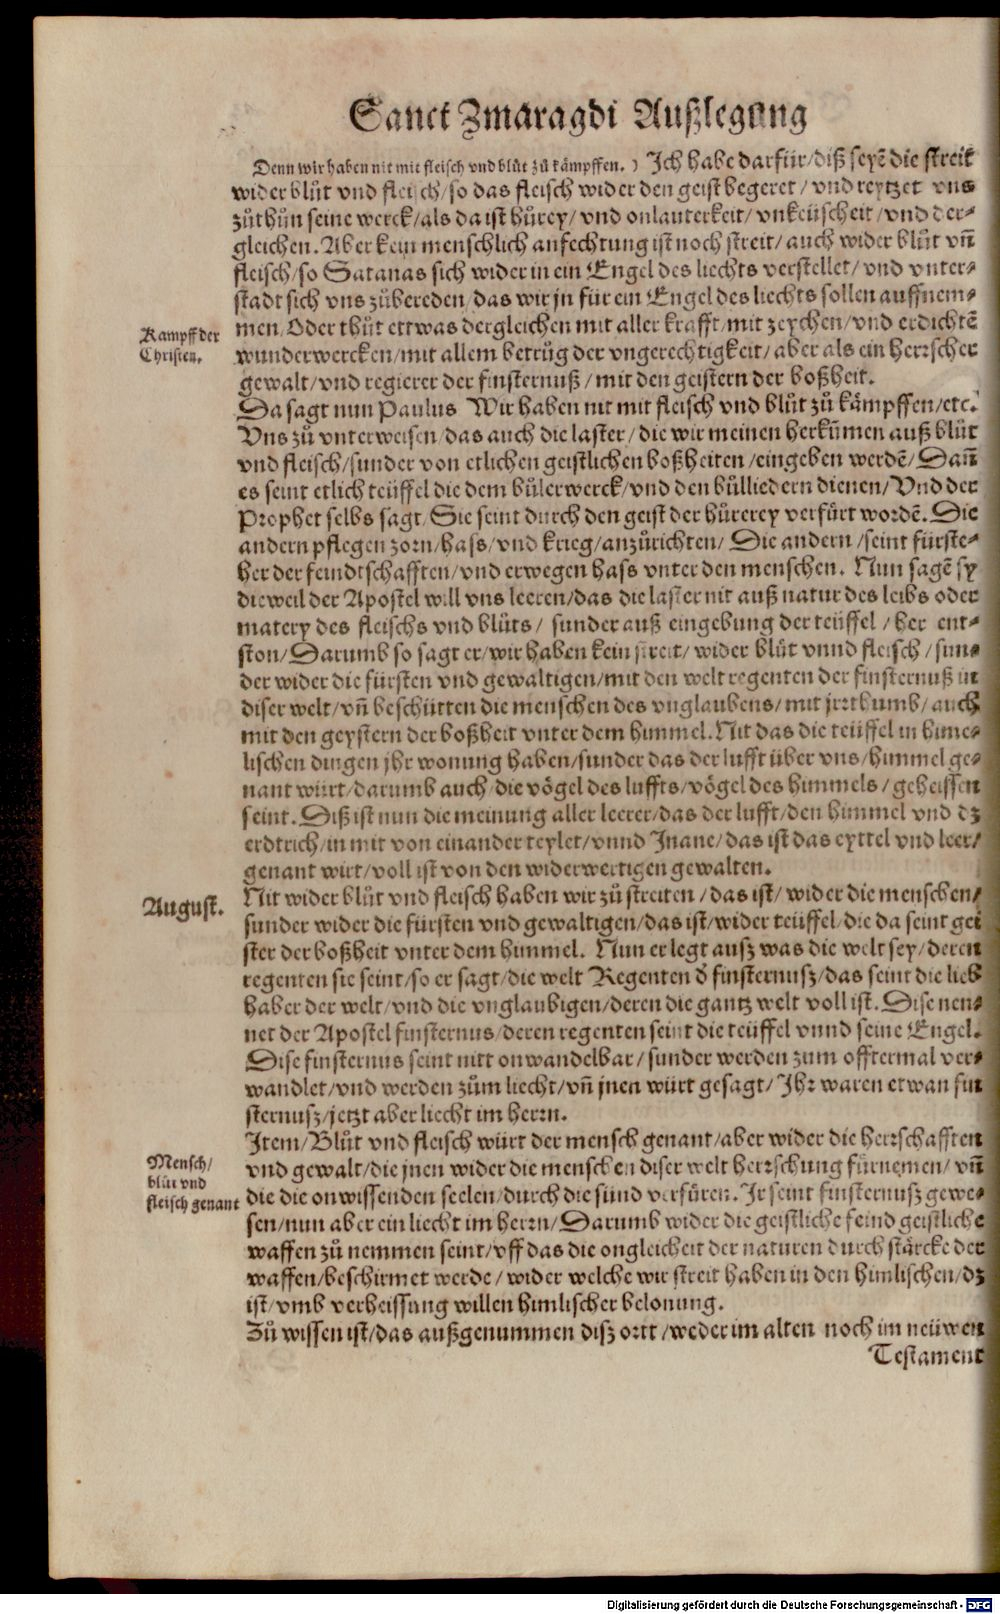 Sanct Zmaragdi Außlegung
Denn wir haben nit mit fleisch vnd blůt zů kämpffen.) Ich habe darfür/diß seyẽ die streit
wider blůt vnd fleisch/so das fleisch wider den geist begeret/vnd reytzet vns
zůthůn seine werck/als da ist hůrey/vnd onlauterkeit/vnkeüscheit/vnd der-
gleichen. Aber kein menschlich anfechtung ist noch streit/auch wider blůt vñ
fleisch/so Satanas sich wider in ein Engel des liechts verstellet/vnd vnter-
stadt sich vns zůbereden/das wir jn für ein Engel des liechts sollen auffnem-
Kampff der
Christen.
men/Oder thůt ettwas dergleichen mit aller krafft/mit zeychen/vnd erdichtẽ
wunderwercken/mit allem betrůg der vngerechtigkeit/aber als ein herrscher
gewalt/vnd regierer der finsternuß/mit den geistern der boßheit.
Da sagt nun Paulus Wir haben nit mit fleisch vnd blůt zů kämpffen/etc.
Vns zů vnterweisen/das auch die laster/die wir meinen herkům̃en auß blůt
vnd fleisch/sunder von etlichen geistlichen boßheiten/eingeben werdẽ/Dañ
es seint etlich teüffel die dem bůlerwerck/vnd den bůlliedern dienen/Vnd der
Prophet selbs sagt/Sie seint durch den geist der hůrerey verfürt wordẽ. Die
andern pflegen zorn/hass/vnd krieg/anzůrichten/Die andern/seint fürste-
her der feindtschafften/vnd erwegen hass vnter den menschen. Nun sagẽ sy
dieweil der Apostel will vns leeren/das die laster nit auß natur des leibs oder
matery des fleischs vnd blůts/ sunder auß eingebung der teüffel/her ent-
ston/Darumb so sagt er/wir haben kein streit/wider blůt vnnd fleisch/sun-
der wider die fürsten vnd gewaltigen/mit den welt regenten der finsternuß in
diser welt/vñ beschütten die menschen des vnglaubens/mit jrrthumb/auch
mit den geystern der boßheit vnter dem himmel. Nit das die teüffel in hime-
lischen dingen jhr wonung haben/sunder das der lufft über vns/himmel ge-
nant würt/darumb auch/die vögel des luffts/vögel des himmels/geheissen
seint. Diß ist nun die meinung aller leerer/das der lufft/den himmel vnd dz
erdtrich/in mit von einander teylet/vnnd Inane/das ist das eyttel vnd leer/
genant wirt/voll ist von den widerwertigen gewalten.
August.
Nit wider blůt vnd fleisch haben wir zů streiten/das ist/wider die menschen/
sunder wider die fürsten vnd gewaltigen/das ist/wider teüffel/die da seint gei
ster der boßheit vnter dem himmel. Nun erlegt ausz was die welt sey/deren
regenten sie seint/so er sagt/die welt Regenten ď finsternusz/das seint die lieb
haber der welt/vnd die vnglaubigen/deren die gantz welt voll ist. Dise nen-
net der Apostel finsternus/deren regenten seint die teüffel vnnd seine Engel.
Dise finsternus seint nitt onwandelbar/sunder werden zum offtermal ver-
wandlet/vnd werden zům liecht/vñ jnen würt gesagt/Ihr waren etwan fin
sternusz/jetzt aber liecht im herrn.
Item/Blůt vnd fleisch würt der mensch genant/aber wider die herrschafften
Mensch/
blůt vnd
fleisch genant
vnd gewalt/die jnen wider die menschen diser welt herrschung fürnemen/vñ
die die onwissenden seelen/durch die sünd verfüren. Ir seint finsternusz gewe-
sen/nun aber ein liecht im herrn/Darumb wider die geistliche feind geistliche
waffen zů nemmen seint/vff das die ongleicheit der naturen durch stärcke der
waffen/beschirmet werde/wider welche wir streit haben in den himlischen/dz
ist/vmb verheissung willen himlischer belonung.
Zů wissen ist/das außgenummen disz ortt/weder im alten noch im neüwen
Testament
Digitalisierung gefördert durch die Deutsche Forschungsgemeinschaft - DFG